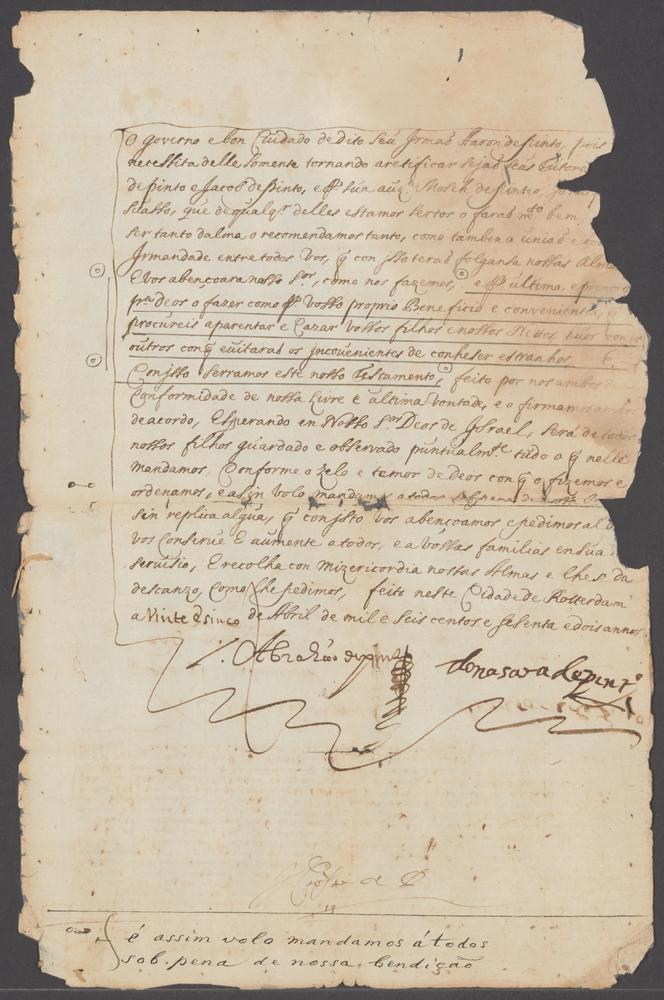 O governo e bon Cuidado de dito seu Irmaõ Haron de pinto, pois
necessita delle somente tornando a retificar sejaõ seus tutore
de pinto e Jacob de pinto, e Moseh de pinto,
suasso, que de qualqr delles estamos sertos o faraõ mto bem
ser tanto dalma o recomendamos tanto, como tambem a uniaõ e
Irmandade entre todos vos, q̃ con isso teraõ folgansa nossas Alma
E vos abençoara nosso sor, como nos fazemos, e última, e
Deos o fazer como vosso proprio Beneficio e conveniente, q̃
procureis aparentar e Cazar vossos filhos e nossos Nettos huns con os
outros con q̃ evitaraõ os incovenientes de conheser estranhos
Con isso serramos este nosso Testamento, feito por nos ambos
Conformidade de nossa livre e última vontade, e o firmamos
de acordo, Esperando en Nosso sor Deos de Ysrael, será de todos
nossos filhos guardado e observado puntualmte tudo o q̃ nelle
mandamos, Conforme o zelo e temor de Deos con q̃ o fizemos e
ordenamos, e asin volo mandamos a todos
sin replica algua, q̃ con isto vos abençoamos e pedimos al
vos Conserve E aumente a todos, e a vossas familias en sua
serviso, E recolha con mizericordia nossas Almas e lhes da
descanzo, Como lhe pedimos, feito neste Cidade de Rotterdam
a Vinte E sinco de Abril de mil e seis centos e sesenta e dois annos
Abrahaõ de pinto
dona sara de pinto
é assim volo mandamos á todos
sob. pena de nossa bendição